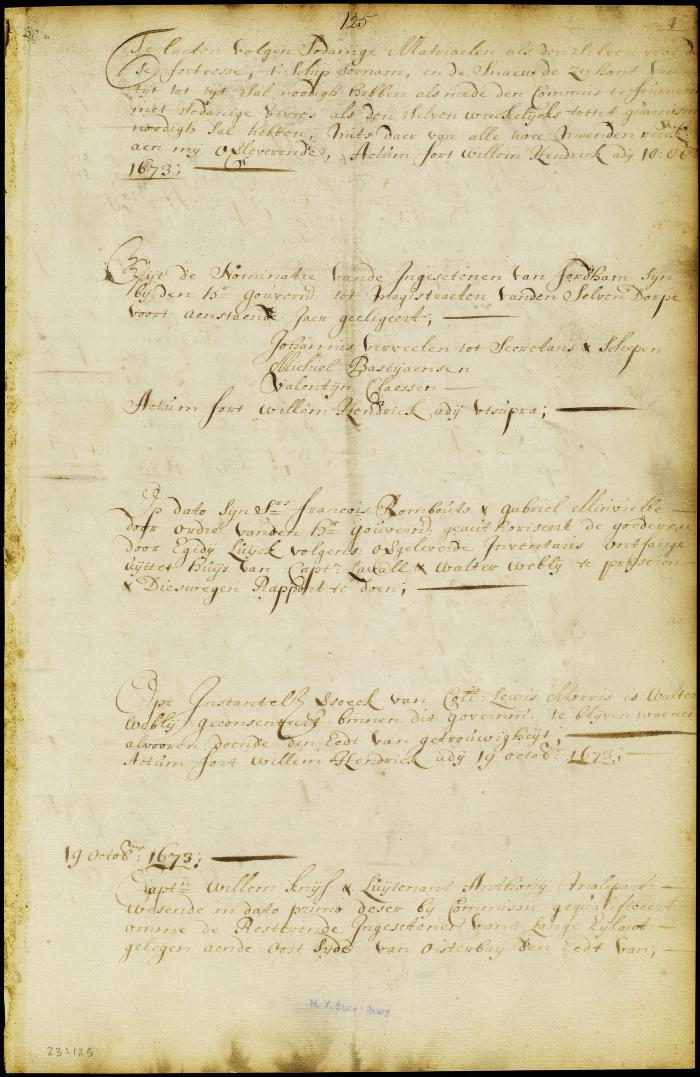 125
Te laeten volgen Sodanige Matriaelen als den Selven voor d
Se fortresse, t' Schip Sornam, en de Snaeu de Zeehont van
tijt tot tijt Sal noodigh hebben als mede den Commis te fourneren
met Sodanige vivres als den Selven weeckelijcks tottet guarnisoen
noodigh Sal hebben, mits daer van alle twee Maenden
aen mij overleverende, Actum fort willem Hendrick ady 18: 8b
1673;
Uijt de Nominatie vande Ingesetenen van fordham Syn
bij den hr gouvernr tot Magistraeten vanden Selven Dorpe
voort aenstaende Jaer geeligeert;
Johannis verveelen tot Secretaris & Schepen
Michiel Bastijaensen
Valentijn Claessen
Actum fort willem Hendrick ady utsupra;
Op dato Syn Srs francois Rombouts & gabriel Minvielle
door ordre vanden hr gouvernr geauthoriseert de goederen
door Egidy Luyck volgens overgeleverde Inventaris ontfange
uyttet huys van Captn Lavall & Walter Webly te priseren
& Dieswegen Rapport te doen;
Opt Instantelk versoeck van Coll: Lewis Morris is Walter
Webly geconsenteert binnen dit governmt te blijven woonen
alvooren doende den Eedt van getrouwigheyt;
Actum fort willem Hendrick ady 19 octobr 1673;
19 Octobr 1673;
Captn Willem knijf & Luytenant Anthony Malepart
wesende in dato primo deser by Commissie gequalificeert
omme de Resterende Ingesetenen vant Lange Eylandt
gelegen aende Oost Syde van Oisterbay den Eedt van,
N. Y. State Library
23:125